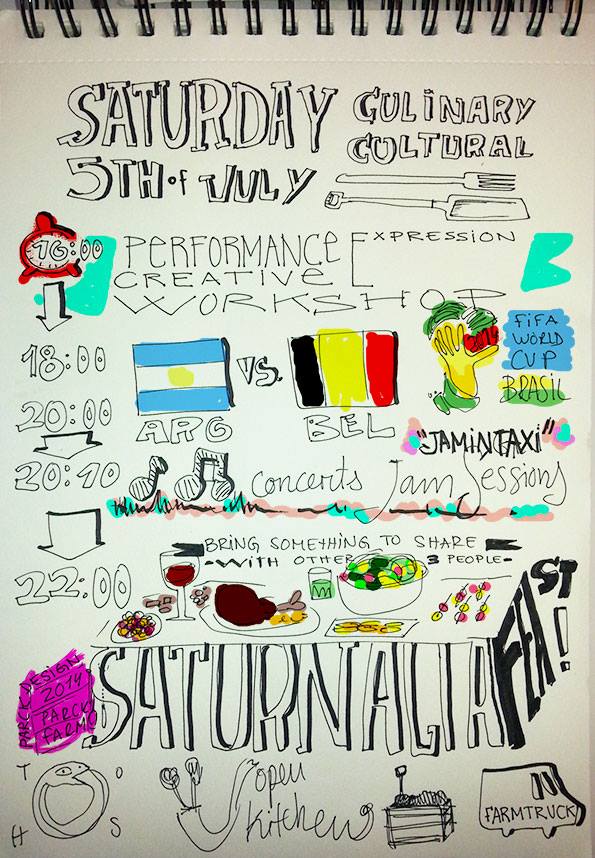 SATURDAY CULINARY
5TH of JULY CULTURAL
16:00 PERFORMANCE EXPRESSION
CREATIVE
WORKSHOP
18:00 VS. 2014 FIFA
WORLD
CUP
BRASIL
20:00 ARG BEL
"JAMINTAXI"
20:10 concerts Jam Sessions
BRING SOMETHING TO SHARE
-WITH OTHER 3 PEOPLE-
22:00
SATURNALIA FEAST!
PARCKDESIGN
2014
PARCK
FARM
T O
H S
open
kitchen
FARMTRUCK